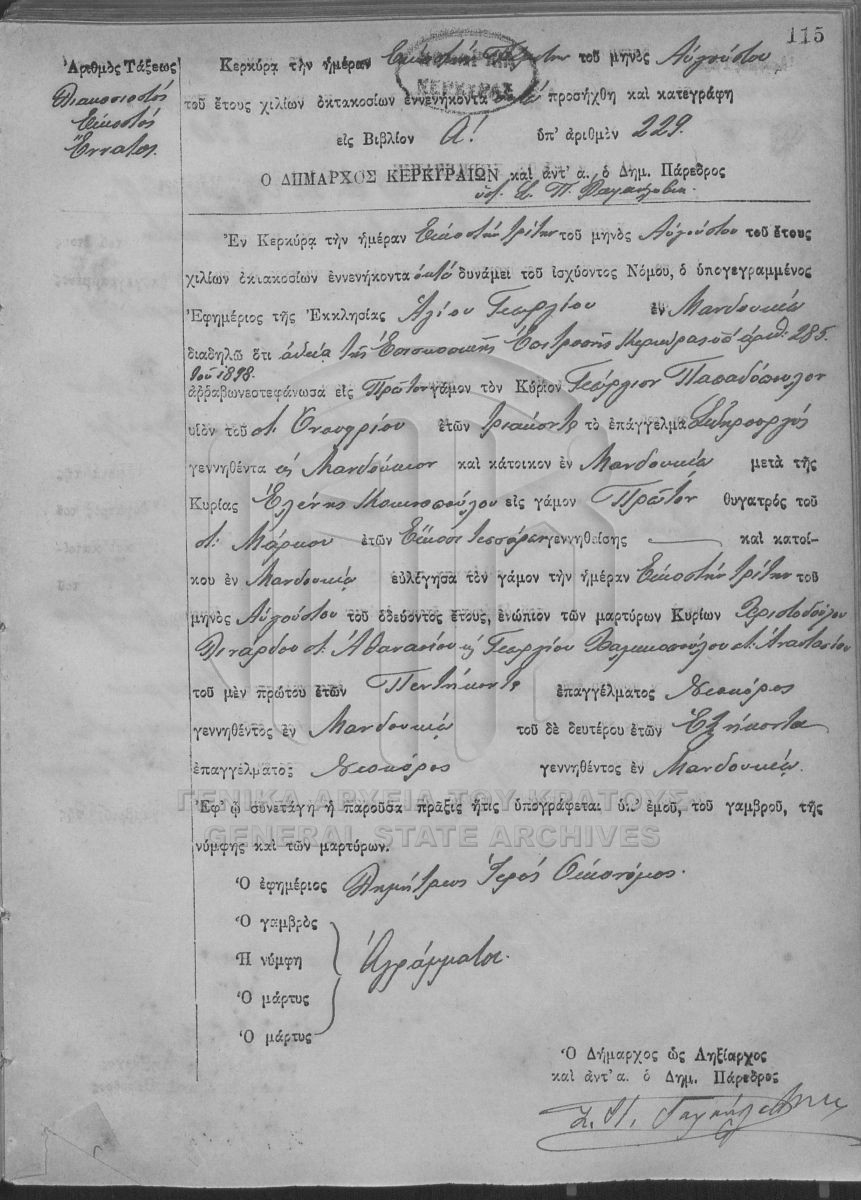 115
Ἀριθμὸς Τάξεως
Διακοσιοστός
Εἰκοστός
Ἔννατος.
Κερκύρᾳ τὴν ἡμέραν Εἰκοστὴν Πέμπτην τοῦ μηνὸς Αὐγούστου
τοῦ ἔτους χιλίων ὀκτακοσίων ἐννενήκοντα ὀκτώ προσήχθη καὶ κατεγράφη
ΚΕΡΚΥΡΑΣ
εἰς Βιβλίον Α! ὑπ' ἀριθμὸν 229.
Ο ΔΗΜΑΡΧΟΣ ΚΕΡΚΥΡΑΙΩΝ καὶ ἀντ' α. ὁ Δημ. Πάρεδρος
Ἐν Κερκύρᾳ τὴν ἡμέραν Εἰκοστὴν τρίτην τοῦ μηνὸς Αὐγούστου τοῦ ἔτους
χιλίων ὀκτακοσίων ἐννενήκοντα ὀκτώ δυνάμει τοῦ ἰσχύοντος Νόμου, ὁ ὑπογεγραμμένος
Ἐφημέριος τῆς Ἐκκλησίας Ἁγίου Γεωργίου ἐν Μανδουκίῳ
διαδηλῶ ὅτι ἀδείᾳ τῆς Ἐπισκοπικῆς Ἐπιτροπῆς Κερκύρας ὑπ' ἀριθ. 285.
τοῦ 1898.
ἀρραβωνεστεφάνωσα εἰς Πρῶτον γάμον τὸν Κύριον Γεώργιον Παπαδόπουλον
υἱὸν τοῦ π. Ὀνουφρίου ἐτῶν τριάκοντα τὸ ἐπάγγελμα Σιδηρουργός
γεννηθέντα εἰς Μανδούκιον καὶ κάτοικον ἐν Μανδουκίῳ μετὰ τῆς
Κυρίας Ἑλένης Μακροπούλου εἰς γάμον Πρῶτον θυγατρὸς τοῦ
π. Μάρκου ἐτῶν Εἴκοσι τεσσάρων γεννηθείσης — καὶ κατοί-
κου ἐν Μανδουκίῳ εὐλόγησα τὸν γάμον τὴν ἡμέραν Εἰκοστὴν τρίτην τοῦ
μηνὸς Αὐγούστου τοῦ ὁδεύοντος ἔτους, ἐνώπιον τῶν μαρτύρων Κυρίων Χριστοδούλου
π. Ἀθανασίου Γεωργίου π. Ἀναστασίου
τοῦ μὲν πρώτου ἐτῶν Πεντήκοντα ἐπαγγέλματος Νεοκόρος
γεννηθέντος ἐν Μανδουκίῳ τοῦ δὲ δευτέρου ἐτῶν Ἑξήκοντα
ἐπαγγέλματος Νεοκόρος γεννηθέντος ἐν Μανδουκίῳ.
ΓΕΝΙΚΑ ΑΡΧΕΙΑ ΤΟΥ ΚΡΑΤΟΥΣ
Ἐφ' ᾧ συνετάγη ἡ παροῦσα πρᾶξις ἥτις ὑπογράφεται ὑπ' ἐμοῦ, τοῦ γαμβροῦ, τῆς
GENERAL STATE ARCHIVES
νύμφης καὶ τῶν μαρτύρων.
Ὁ ἐφημέριος Δημήτριος Ἱερεύς Οἰκονόμος.
Ὁ γαμβρὸς
Ἡ νύμφη
Ἀγράμματοι.
Ὁ μάρτυς
Ὁ μάρτυς
Ὁ Δήμαρχος ὡς Ληξίαρχος
καὶ ἀντ' α. ὁ Δημ. Πάρεδρος